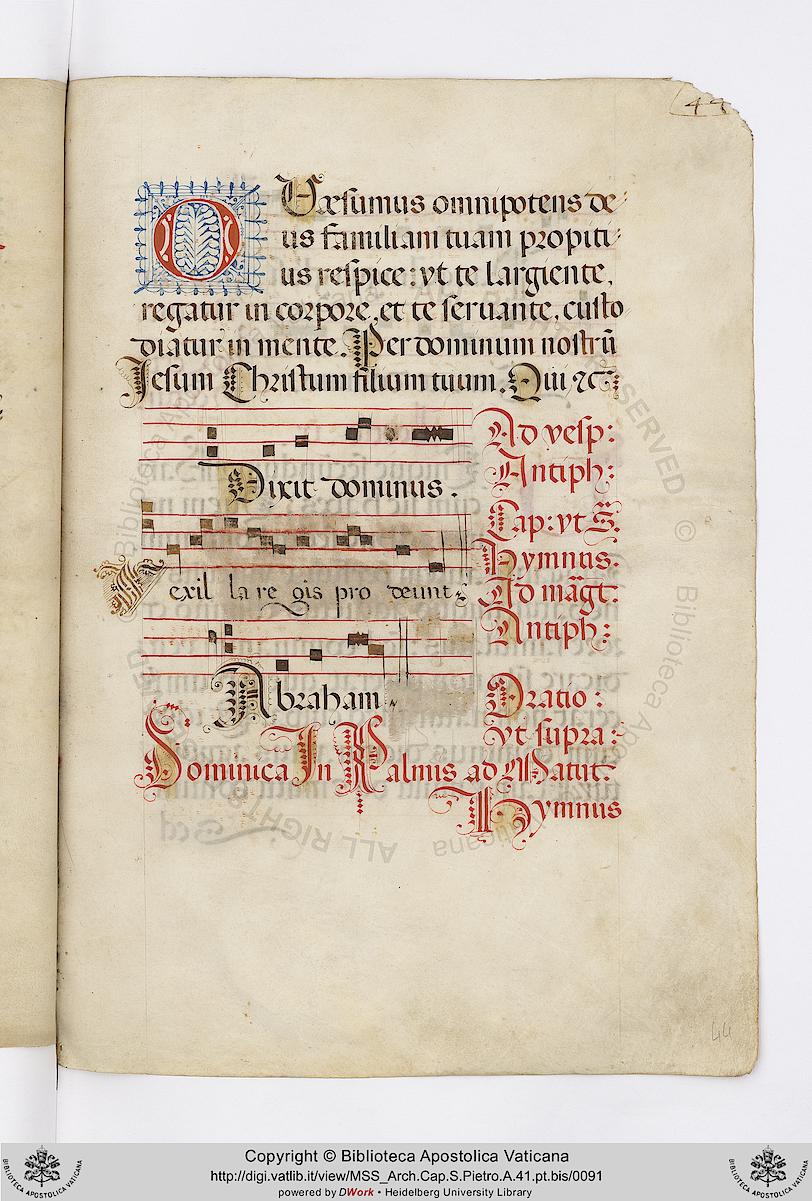 44
QUæsumus omnipotens de
us familiam tuam propiti
us respice: vt te largiente,
regatur in corpore, et te seruante, custo
diatur in mente. Per dominum nostrũ
Jesum Christum filium tuum. Qui ⁊c̃:
Ad vesp:
Antiph:
Dixit dominus.
Cap: vt S.
Hymnus.
Vexil la re gis pro deunt
Ad mag̃t:
Antiph:
Abraham
Oratio:
vt supra:
Dominica In Palmis ad Matut:
Hymnus
44
ALL RIGHTS RESERVED © Biblioteca Apostolica Vaticana
Copyright © Biblioteca Apostolica Vaticana
http://digi.vatlib.it/view/MSS_Arch.Cap.S.Pietro.A.41.pt.bis/0091
powered by DWork • Heidelberg University Library
BIBLIOTECA APOSTOLICA VATICANA
BIBLIOTECA APOSTOLICA VATICANA